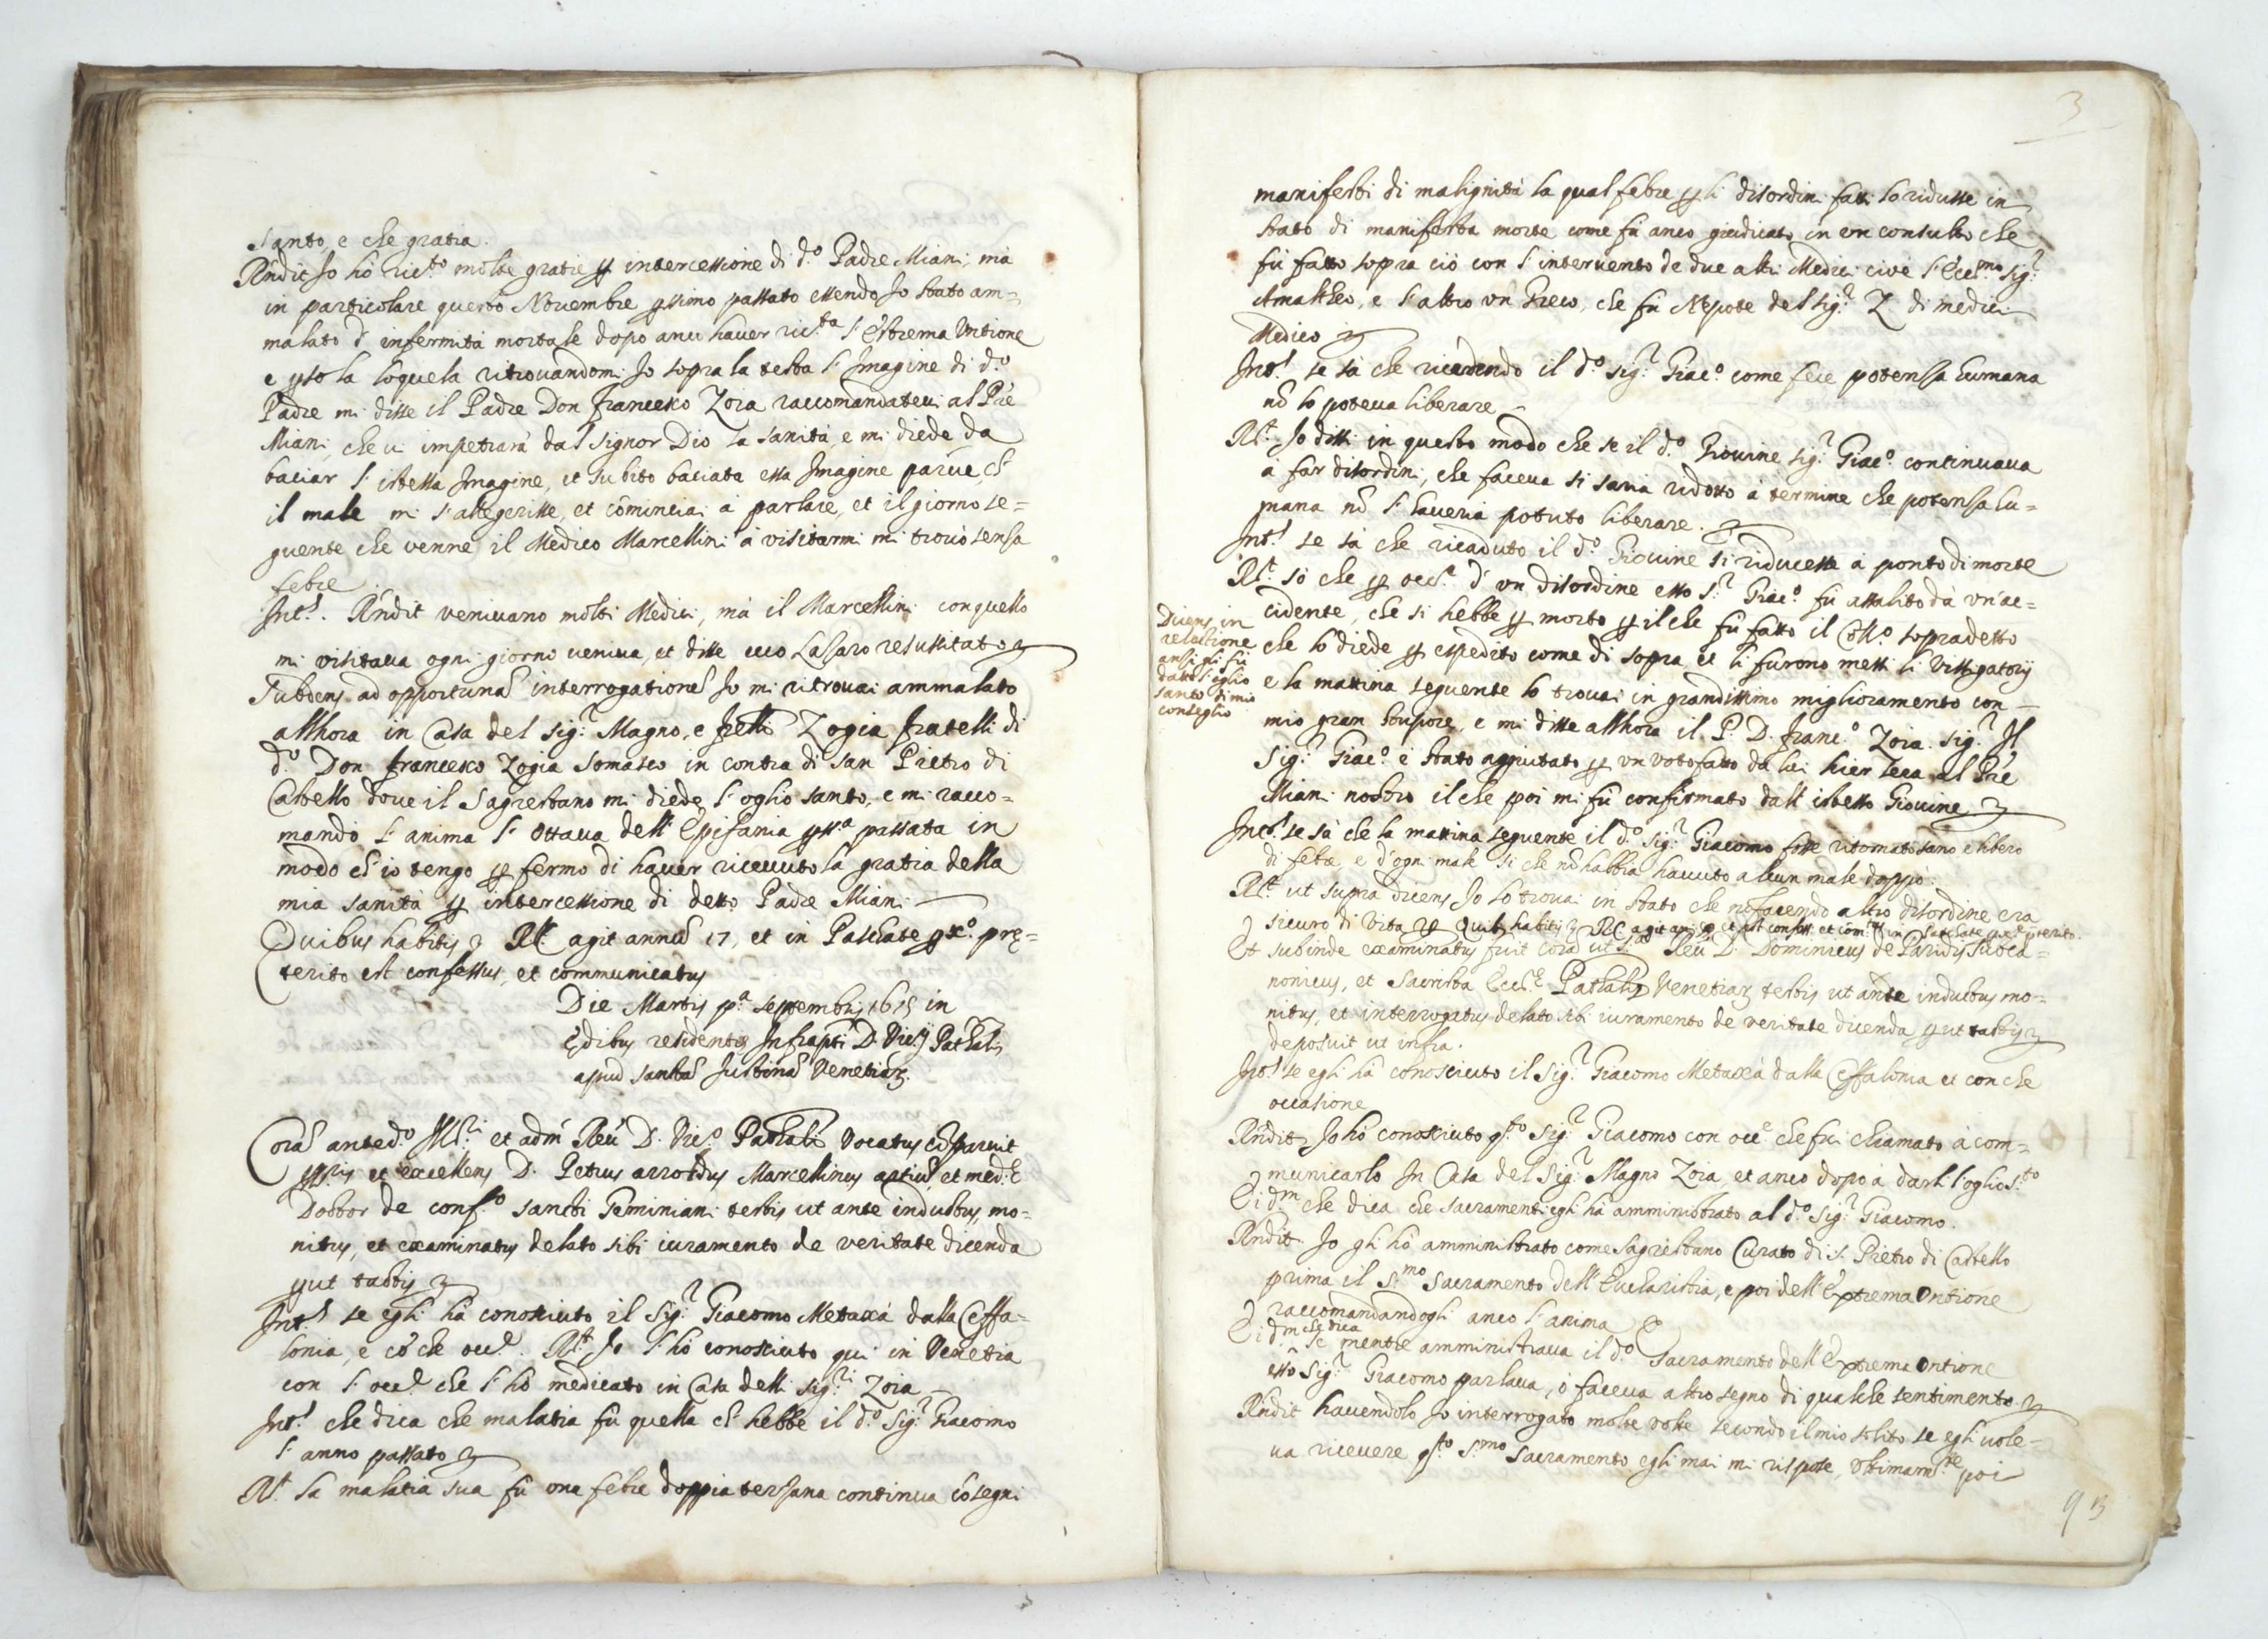 santo, e che gratia.
Rñdit Io hò ric.to molte gratie ꝑ intercessione di d.o Padre Miani, mà
in particolare questo Novembre ꝑssimo passato essendo Io stato am=
malato d' infermità mortale dopo anco haver ric.ta l' estrema Untione
e ꝑso la loquela ritrovandomi Io sopra la testa l' Imagine di d.o
Padre mi disse il Padre Don Francesco Zoia raccomandatevi al Prē
Miani, che vi impetrarà dal Signor Dio la sanità, e mi diede da
baciar l' istessa Imagine, et subito baciata essa Imagine parve ch'
il male mi s' allegerisse, et cōminciai à parlare, et il giorno se=
guente che venne il Medico Marcellini à visitarmi mi trovò senza
febre.
Int.s Rñdit venivano molti Medici, mà il Marcellini con quello
mi visitava ogni giorno veniva, et disse ecco Lasaro resussitato
Subdens ad opportunas interrogationes Io mi ritrovai ammalato
all'hora in Casa del Sig.r Magno, e frelli Zogia fratelli di
d.o Don Francesco Zogia Somasco in contrà di San Pietro di
Castello dove il Sagrestano mi diede l' oglio santo, e mi racco=
mandò l' anima l' ottava dell' Epifania ꝑss.a passata in
modo ch' io tengo ꝑ fermo di haver ricevuto la gratia della
mia sanità ꝑ intercessione di detto Padre Miani
Quibus habitis R.t agit annũ 17, et in Paschate ꝑx.o prę=
terito est confessus, et communicatus
Die Martis p.a septembris 1615 in
Ędibus residentię Infrapti D. Vicrij Patħalis
apud sanctã Iustinã Venetiar.
Corã anted.o Ill.ri et adm Reũ D. Vic.o Patħali vocatus cōparuit
ꝑll.ris et excellens D. Petrus Marcellinus artiũ, et med.ę
Doctor de conf.o sancti Geminiani testis ut ante inductus, mo=
nitus, et examinatus delato sibi iuramento de veritate dicenda
ꝑut tactis
Int.s se egli hà conosciuto il Sig.r Giacomo Metaxà dalla Ceffa=
lonia, e cō che occ.e R.t Io l' hò conosciuto qui in Venetia
con l' occ.e che l' hò medicato in Casa delli Sig.ri Zoia
Int.s che dica che malatia fù quella ch' hebbe il d.o Sig.r Giacomo
l' anno passato
R.t la malatia sua fù una febre doppia tersana continua cō segni
3
manifesti di malignità la qual febre ꝑ li disordini fatti lo ridusse in
stato di manifesta morte come fù anco giudicato in un consulto che
fù fatto sopra ciò con l' intervento de due altri Medici cioè l' Ecc.mo Sig.r
Amaltheo, e l' altro un Greco, che fù Nepote del Sig.r Z. di medici
Medico
Int.s se sà che ricadendo il d.o Sig.r Giac.o come fece potenza humana
nō lo poteva liberare
R.t Io dissi in questo modo che se il d.o Giovine Sig.r Giac.o continuava
a far disordini, che faceva si saria ridotto à termine che potenza hu=
mana nō l' haveria potuto liberare.
Int.s se sà che ricaduto il d.o Giovine si riducesse à ponto di morte
R.t sò che ꝑ occ.e d' un disordine esso S.r Giac.o fù assalito dà un'ac=
cidente, che si hebbe ꝑ morto ꝑ il che fù fatto il Cōll.o sopradetto
che lo diede ꝑ espedito come di sopra et li furono messi li vissigatorij
e la mattina seguente lo trovai in grandissimo miglioramento con
mio gran stupore, e mi disse allhora il P. D. Franc.o Zoia. Sig.r Il
Sig.r Giac.o è stato aggiutato ꝑ un voto fatto da lui hier sera al Prē
Miani nostro il che poi mi fù confirmato dall' istesso Giovine
Dicens in
relatione
anzi gli fù
dato l' oglio
santo di mio
conseglio
Int.s se sà che la mattina seguente il d.o Sig.r Giacomo fosse ritornato sano e libero
di febre e d'ogni male si che nō habbia havuto alcun male doppo.
R.t ut supra dicens Io lo trovai in stato che nō facendo altro disordine era
sicuro di vita Quib. habitis R.t agit an. et est confess. et com. in Paschate prox.e pterito.
Et subinde examinatus fuit corā ut s.a Reũ D. Dominicus de Paridis subca=
nonicus, et Sacrista Eccl.ę Patħalis Venetiar. testis ut ante inductus mo=
nitus, et interrogatus delato sibi iuramento de veritate dicenda ꝑut tactis
deposuit ut infra.
Int.s se egli hà conosciuto il Sig.r Giacomo Metaxà dalla Ceffalonia et con che
occasione
Rñdit Io hò conosciuto q.sto Sig.r Giacomo con occ.e che fui chiamato à com=
municarlo In Casa del Sig.r Magno Zoia, et anco dopo à darli l'oglio s.to
Ei d.m che dica che sacramenti egli hà amministrato al d.o Sig.r Giacomo.
Rñdit Io gli hò amministrato come Sagrestano Curato di S. Pietro di Castello
prima il S.mo Sacramento dell' Eucharistia, e poi dell' Extrema Ontione
raccomandandogli anco l' anima
Ei d.m che dica se mentre amministrava il d.o Sacramento dell' Extrema Ontione
esso Sig.r Giacomo parlava, ò faceva altro segno di qualche sentimento
Rñdit havendolo Io interrogato molte volte secondo il mio solito se egli vole=
va ricevere q.sto S.mo Sacramento egli mai mi rispose, ultimam.te poi